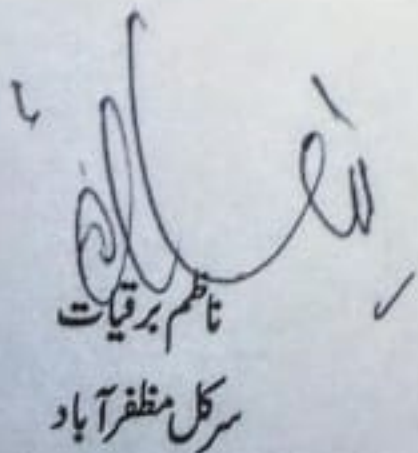 ناظم برقیات
سرکل مظفرآباد